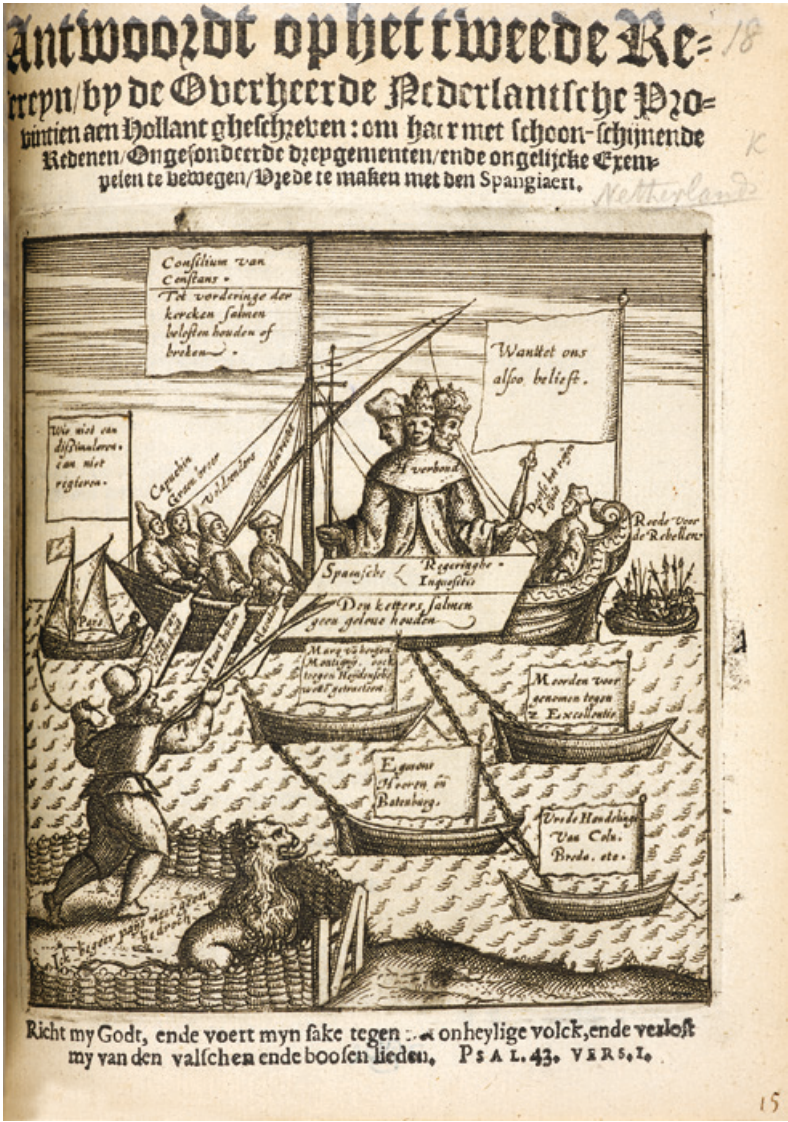 Antwoordt op het tweede Re=
ereyn/by de Overheerde Nederlantsche Pro=
vintien aen Hollant gheschreven: om haer met schoon-schijnende
Redenen/Ongefondeerde dreygementen/ende ongelijcke Exem-
pelen te bewegen/Vrede te maken met den Spangiaert.
18
K
Netherlands
Consilium van
Constans.
Tot vorderinge der
kercken salmen
belosten houden of
breken
Wanttet ons
alsoo beliest.
Wie niet can
dissimuleren.
can niet
regieren.
Capuchin
Graeu broer
H verbond
Roede voor
de Rebellen
Spaensche Regeringhe.
Inquesitie
Den ketters salmen
geen gelove houden
Pays
Marq vā bergen
Montigny. oock
tegen Heydensche
Moorden voor
genomen tegen
z Excellentie
Egmont
Hoeren en
Batenburg.
Vrede Handelinge
Van Coln.
Breda. etc.
Ick begeer pays maer geen
bedroch
Richt my Godt, ende voert myn sake tegen onheylige volck, ende verlost
my van den valschen ende boosen lieden. PSAL. 43. VERS. I.
15